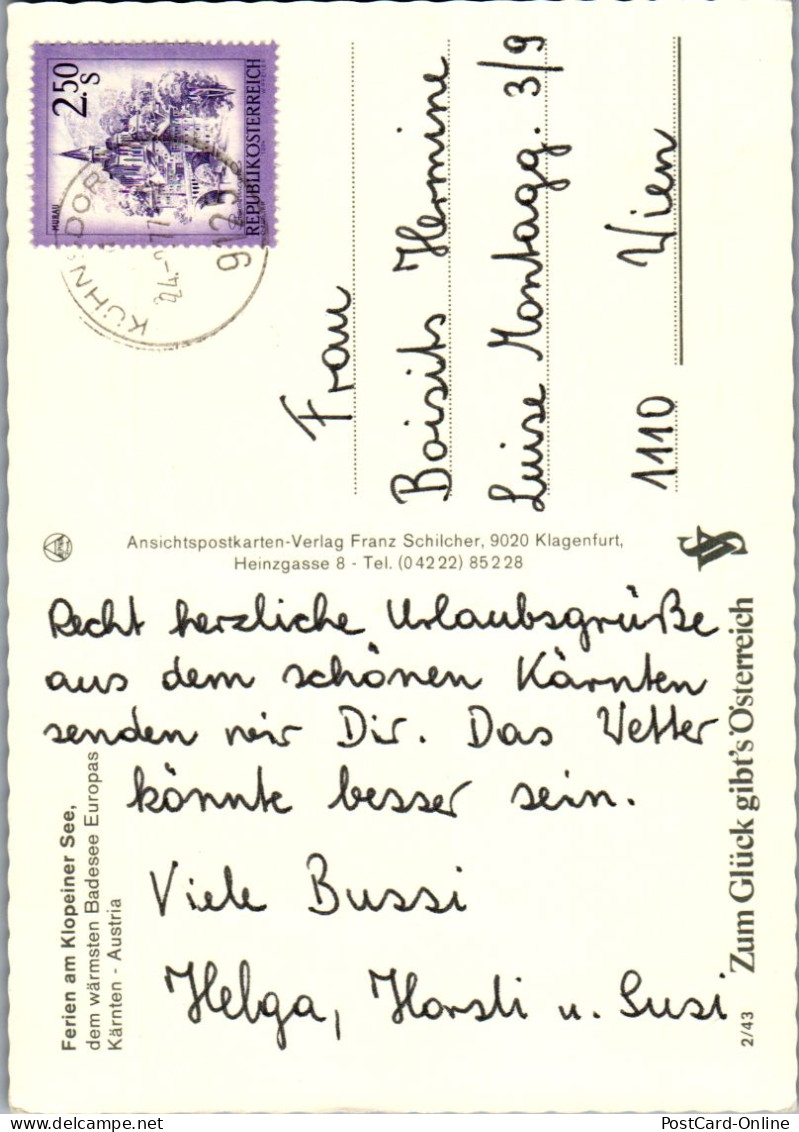 2.50
S
REPUBLIK ÖSTERREICH
MURAU
KÜHNSDORF
9125
Frau
Boisits Hermine
Luise Montagg. 3/9
1110 Wien
Ansichtspostkarten-Verlag Franz Schilcher, 9020 Klagenfurt,
Heinzgasse 8 - Tel. (04222) 85228
Recht herzliche Urlaubsgrüße
aus dem schönen Kärnten
senden wir Dir. Das Wetter
könnte besser sein.
Viele Bussi
Helga, Horsti u. Susi
Ferien am Klopeiner See,
dem wärmsten Badesee Europas
Kärnten - Austria
Zum Glück gibt's Österreich
2/43
www.delcampe.net
PostCard-Online